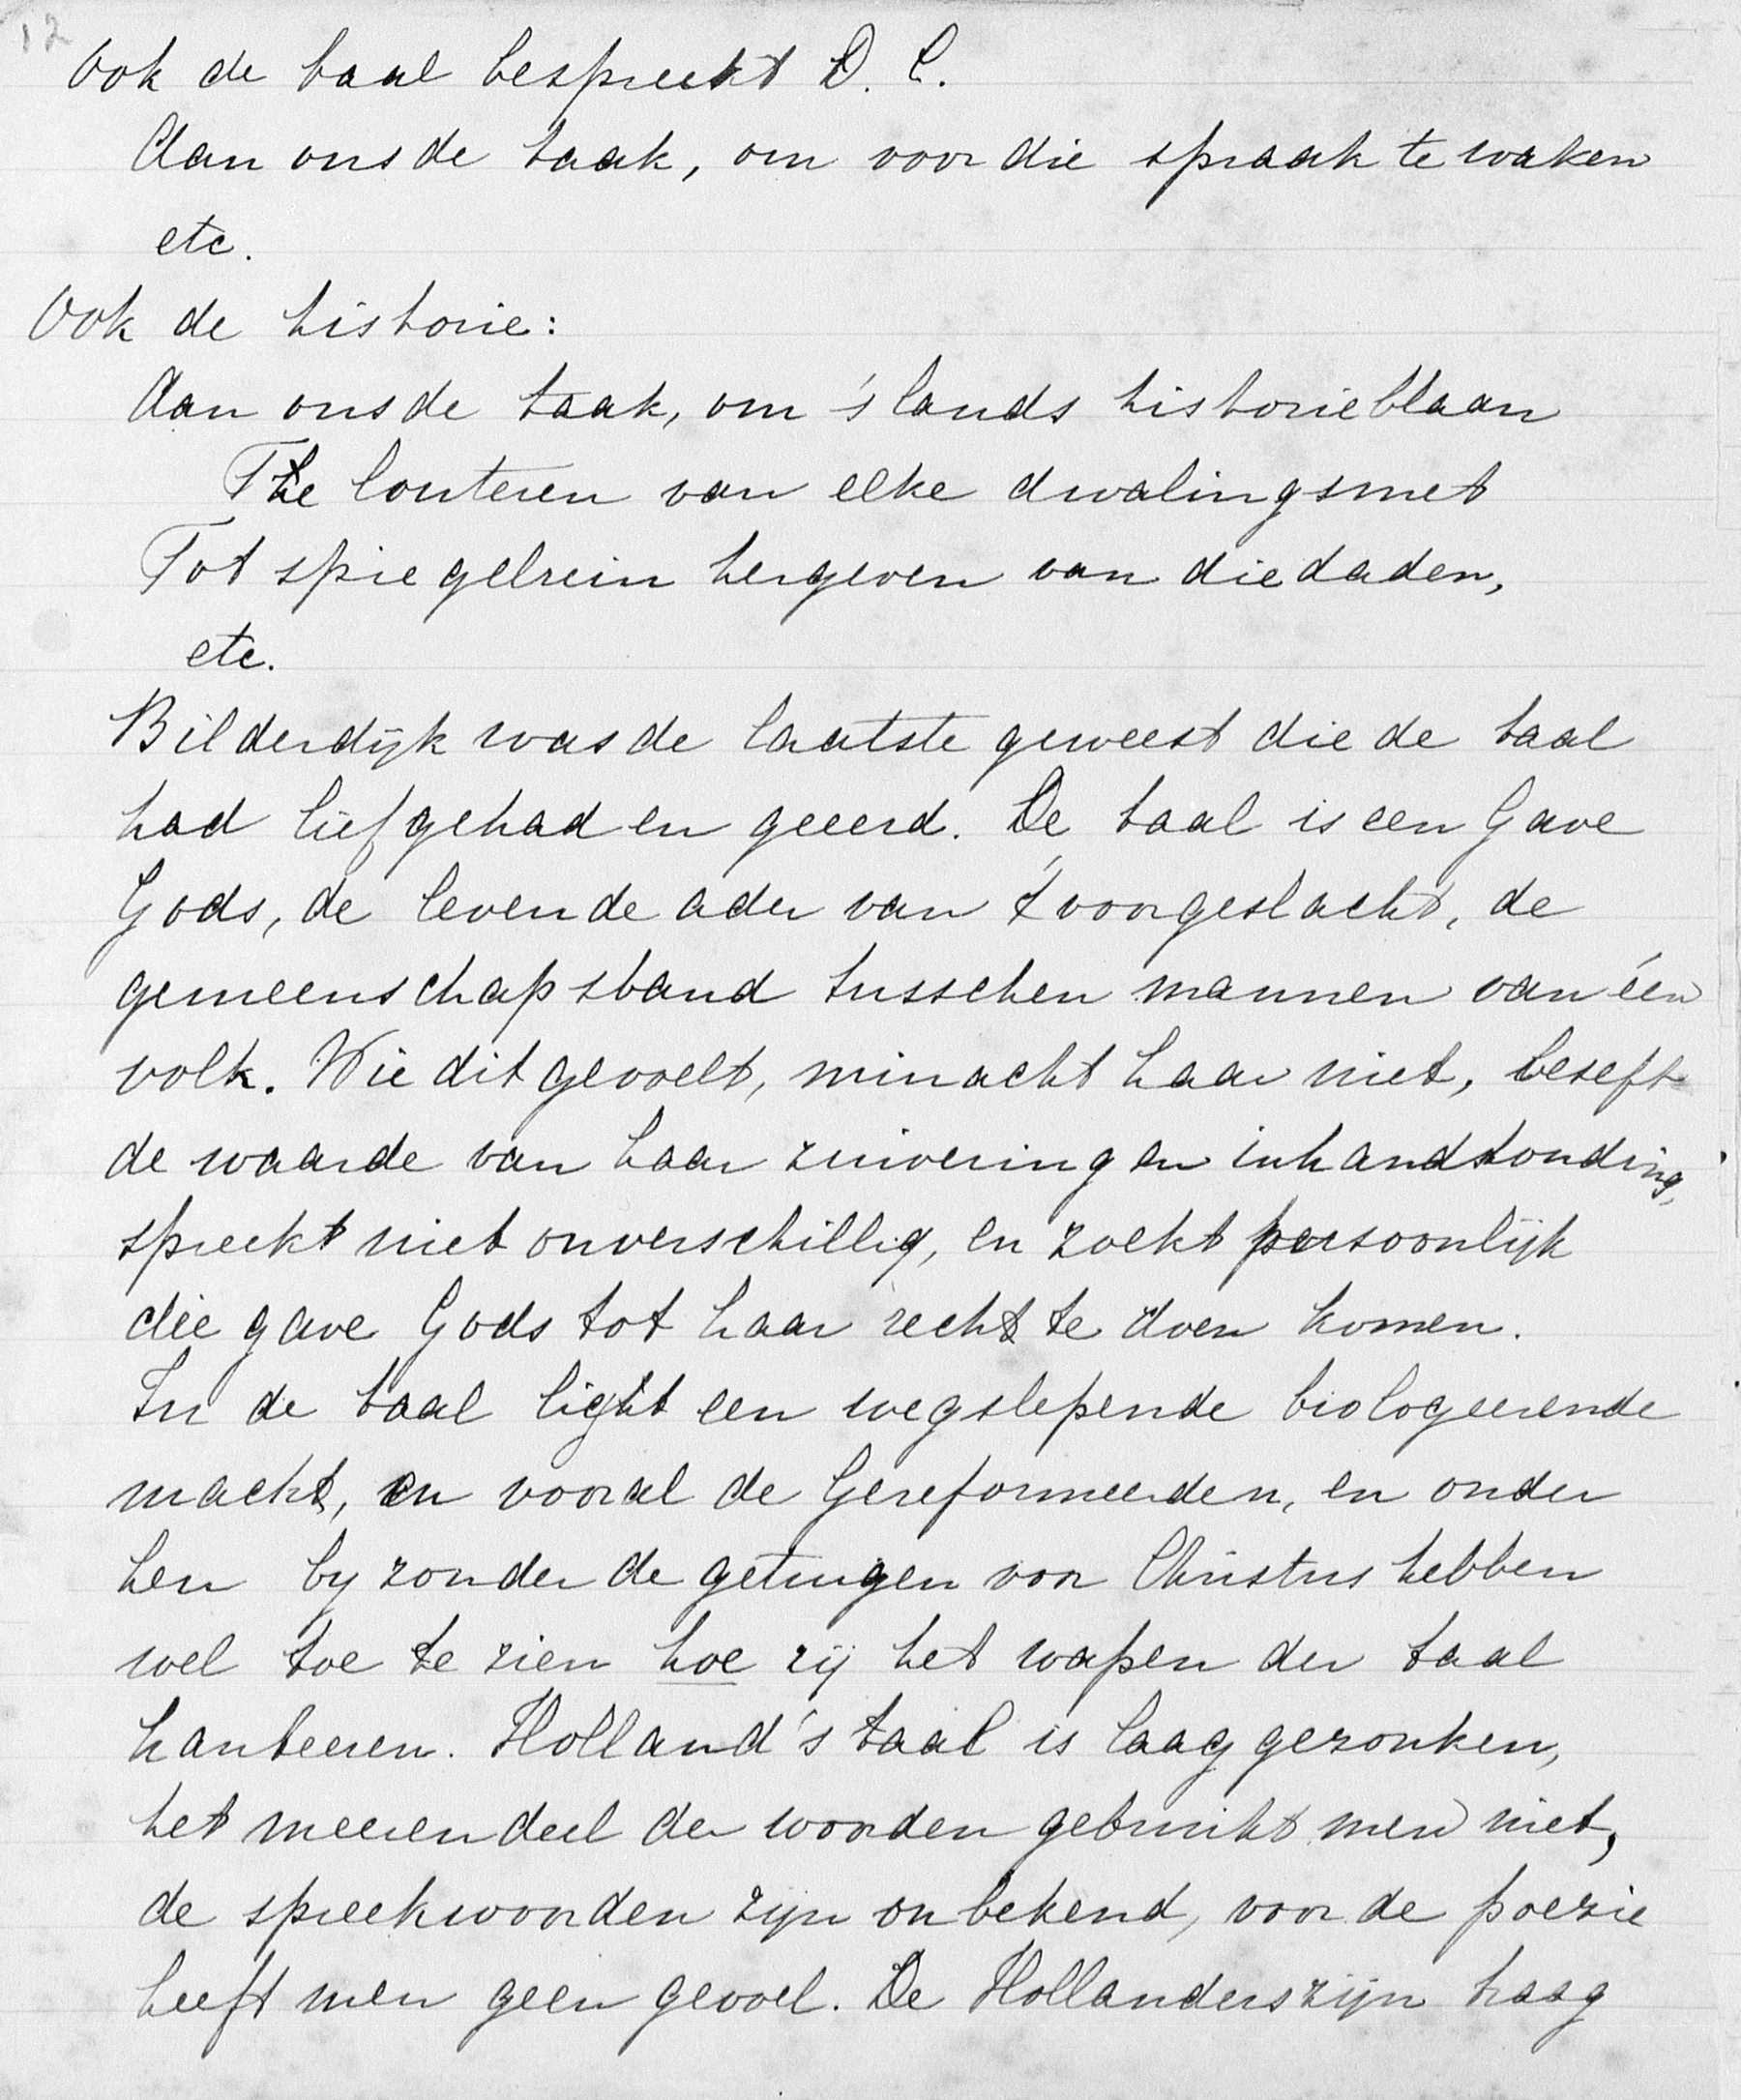 12
Ook de taal bespreekt D. C.
Aan ons de taak, om voor die spraak te waken
etc.
Ook de historie:
Aan ons de taak, om 's lands historieblaan
Te louteren van elke dwalingsmet
Tot spiegelrein hergeven van die daden,
etc.
Bilderdijk was de laatste geweest die de taal
had liefgehad en geeerd. De taal is een Gave
Gods, de levende ader van 't voorgeslacht, de
gemeenschapsband tusschen mannen van één
volk. Wie dit gevoelt, minacht haar niet, beseft
de waarde van haar zuivering en inhandhouding,
spreekt niet onverschillig, en zoekt persoonlijk
die gave Gods tot haar recht te doen komen.
In de taal ligt een wegslepende biologeerende
macht, en vooral de Gereformeerden, en onder
hen byzonder de getuigen voor Christus hebben
wel toe te zien hoe zij het wapen der taal
hanteeren. Holland's taal is laag gezonken,
het meerendeel der woorden gebruikt men niet,
de spreekwoorden zijn onbekend, voor de poezie
heeft men geen gevoel. De Hollanders zijn traag